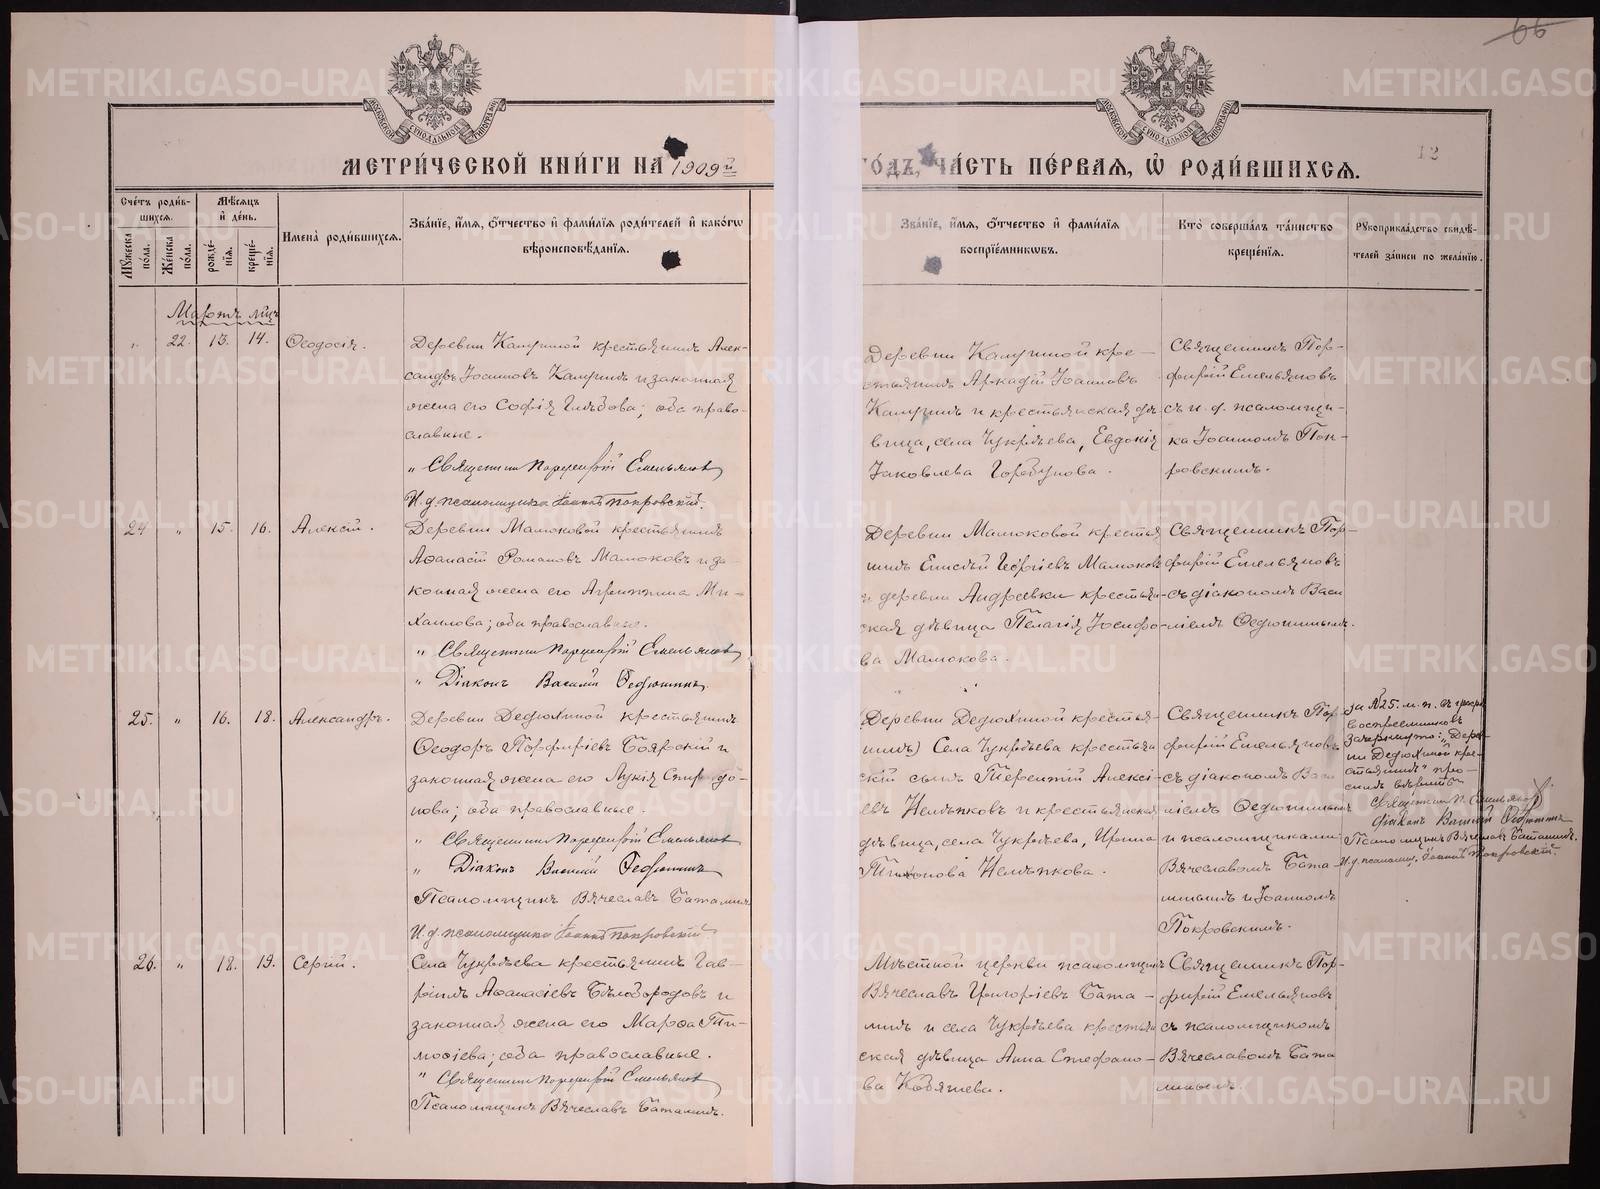 66
МОСКОВСКОЙ СѴНОДАЛЬНОЙ ТИПОГРАФІИ
МОСКОВСКОЙ СѴНОДАЛЬНОЙ ТИПОГРАФІИ
МЕТРИ́ЧЕСКОЙ КНИ́ГИ НА 1909й
ГО́ДЪ, ЧА́СТЬ ПЕ́РВАѦ, Ѡ РОДИ́ВШИХСѦ.
12
Сче́тъ роди́в-
шихсѧ.
Мужеска по́ла.
Же́нска по́ла.
Мѣ́сѧцъ
и҆ де́нь.
рожде́-
нїѧ.
креще́-
нїѧ.
И҆мена̀ роди́вшихсѧ.
Зва́нїе, и҆́мѧ, ѻ҆́тчество и҆ фами́лїѧ роди́телей и҆ како́гѡ
вѣроисповѣ́данїѧ.
Зва́нїе, и҆́мѧ, ѻ҆́тчество и҆ фами́лїѧ
воспрїе́мникѡвъ.
Кто̀ соверша́лъ та́инство
креще́нїѧ.
Рꙋкоприкла́дство свидѣ́-
телей за́писи по жела́нїю.
Мартъ мцъ
" 22. 13. 14. Ѳеодосія.
Деревни Кашиной крестьянинъ Алек-
сандръ Іоанновъ Кашинъ и законная
жена его Софія Глѣбова; оба право-
славные.
" Священникъ Порфирій Емельяновъ
И. д. псаломщика Іоаннъ Покровскій.
Деревни Кашиной кре-
стьянинъ Аркадій Іоанновъ
Кашинъ и крестьянская дѣ-
вица, села Чукрѣева, Евдокія
Іаковлева Горбунова.
Священникъ Пор-
фирій Емельяновъ
съ и. д. псаломщи-
ка Іоанномъ Пок-
ровскимъ.
24 " 15. 16. Алексій.
Деревни Мамоковой крестьянинъ
Аѳанасій Романовъ Мамоковъ и за-
конная жена его Агриппина Ми-
хаилова; оба православные.
" Священникъ Порфирій Емельяновъ
" Діаконъ Василій Ѳедюшинъ.
Деревни Мамоковой крестья
нинъ Елисѣй Георгіевъ Мамоковъ
и деревни Андреевки крестьян-
ская дѣвица Пелагія Іосифо-
ва Мамокова.
Священникъ Пор-
фирій Емельяновъ
съ діакономъ Васи
ліемъ Ѳедюшинымъ.
25. " 16. 18. Александръ.
Деревни Дедюхиной крестьянинъ
Ѳеодоръ Порфиріевъ Боярскій и
законная жена его Лукія Спиридо-
нова; оба православные.
" Священникъ Порфирій Емельяновъ
" Діаконъ Василій Ѳедюшинъ
Псаломщикъ Вячеславъ Баталинъ
И. д. псаломщика Іоаннъ Покровскій
(Деревни Дедюхиной крестья-
нинъ) Села Чукрѣева крестьян
скій сынъ Терентій Алексі-
евъ Немѣжковъ и крестьянская
дѣвица, села Чукрѣева, Ирина
Тихонова Немѣжкова.
Священникъ Пор
фирій Емельяновъ
съ діакономъ Васи
ліемъ Ѳедюшинымъ
и псаломщиками
Вячеславомъ Бата-
линымъ и Іоанномъ
Покровскимъ.
за №25. м. п. въ графѣ
воспріемниковъ
зачеркнуто: "Дерев
ни Дедюхиной кре-
стьянинъ" про-
симъ вѣрить
Священникъ П. Емельяновъ
Діаконъ Василій Ѳедюшинъ
Псаломщикъ Вячеславъ Баталинъ.
И.д. псаломщ. Іоаннъ Покровскій.
26. " 18. 19. Сергій.
Села Чукрѣева крестьянинъ Гав-
ріилъ Аѳанасіевъ Бѣлобородовъ и
законная жена его Марѳа Ти-
моѳіева; оба православные.
" Священникъ Порфирій Емельяновъ
Псаломщикъ Вячеславъ Баталинъ.
Мѣстной церкви псаломщикъ
Вячеславъ Григоріевъ Бата-
линъ и села Чукрѣева крестьян
ская дѣвица Анна Стефано-
ва Кобяшева.
Священникъ Пор-
фирій Емельяновъ
съ псаломщикомъ
Вячеславомъ Бата
линымъ.